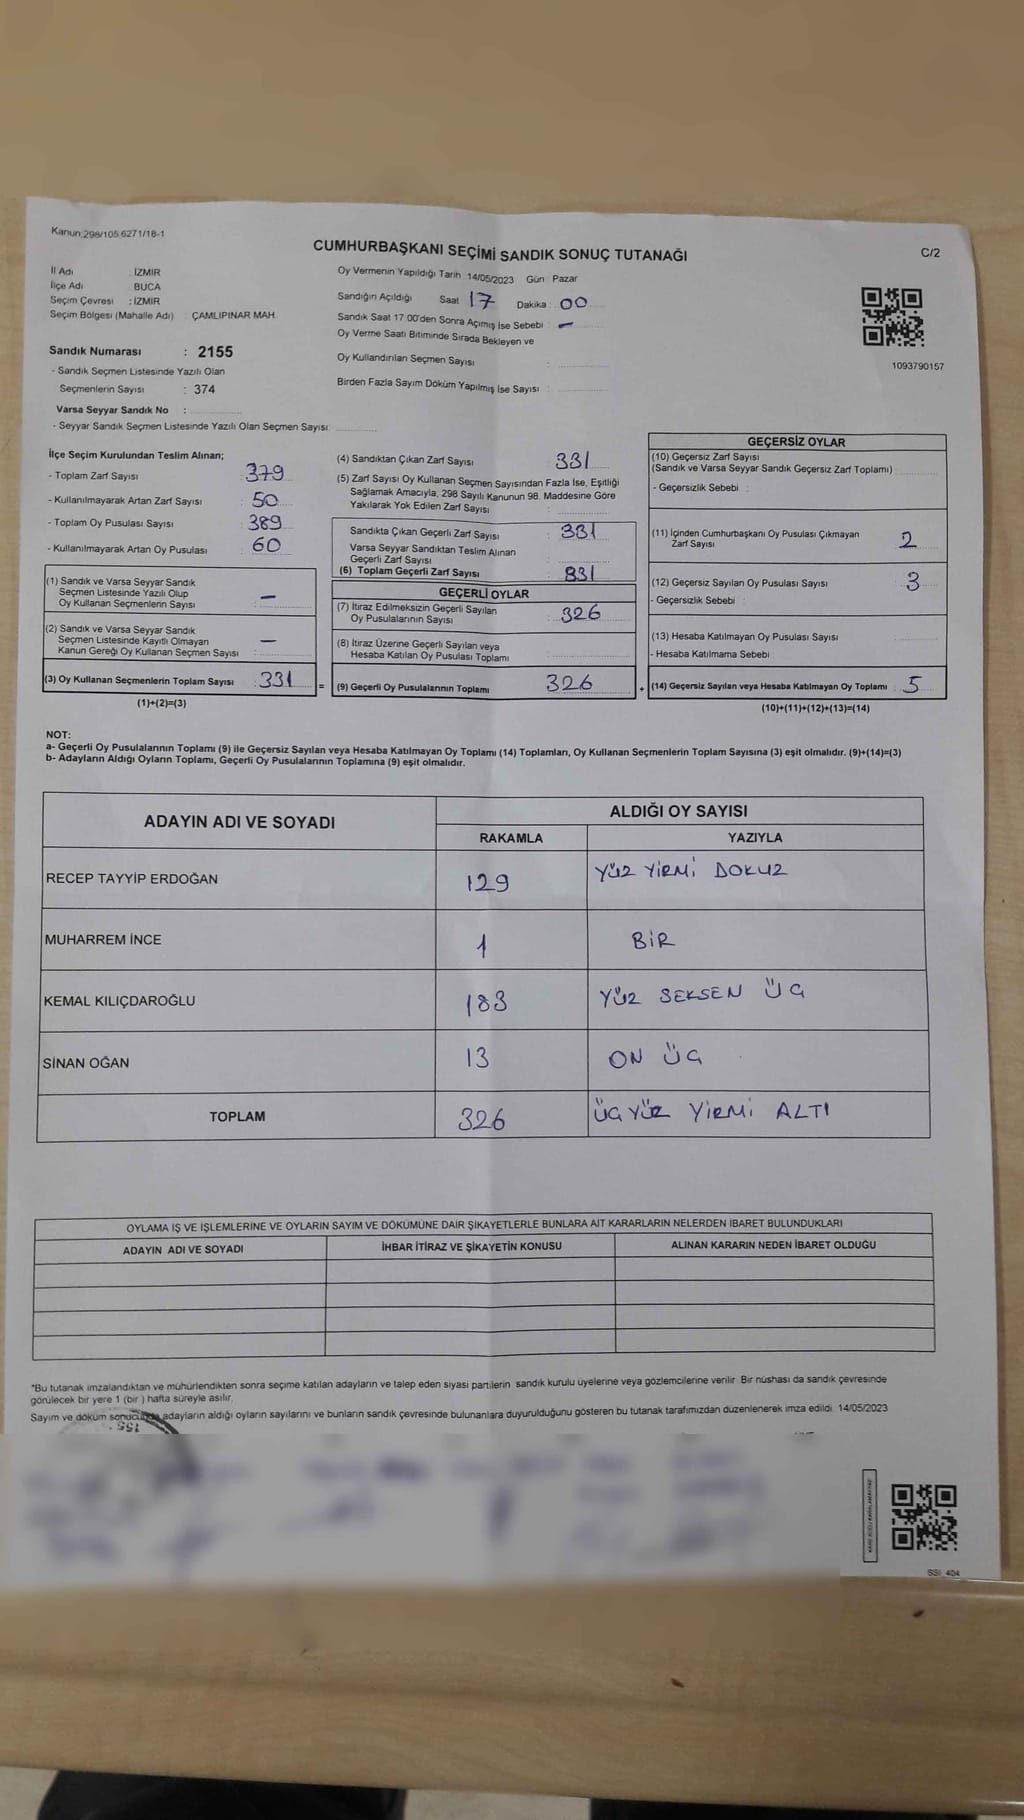 Kanun:298/105.6271/18-1
CUMHURBAŞKANI SEÇİMİ SANDIK SONUÇ TUTANAĞI
C/2
İl Adı : İZMİR
İlçe Adı : BUCA
Seçim Çevresi : İZMİR
Seçim Bölgesi (Mahalle Adı) : ÇAMLIPINAR MAH.
Sandık Numarası : 2155
- Sandık Seçmen Listesinde Yazılı Olan
Seçmenlerin Sayısı : 374
Varsa Seyyar Sandık No :
- Seyyar Sandık Seçmen Listesinde Yazılı Olan Seçmen Sayısı:
Oy Vermenin Yapıldığı Tarih 14/05/2023 Gün Pazar
Sandığın Açıldığı Saat 17 Dakika : 00
Sandık Saat 17:00'den Sonra Açımış İse Sebebi : –
Oy Verme Saati Bitiminde Sırada Bekleyen ve
Oy Kullandırılan Seçmen Sayısı :
Birden Fazla Sayım Döküm Yapılmış İse Sayısı :
1093790157
İlçe Seçim Kurulundan Teslim Alınan;
- Toplam Zarf Sayısı : 379
- Kullanılmayarak Artan Zarf Sayısı : 50
- Toplam Oy Pusulası Sayısı : 389
- Kullanılmayarak Artan Oy Pusulası : 60
(1) Sandık ve Varsa Seyyar Sandık
Seçmen Listesinde Yazılı Olup
Oy Kullanan Seçmenlerin Sayısı : –
(2) Sandık ve Varsa Seyyar Sandık
Seçmen Listesinde Kayıtlı Olmayan
Kanun Gereği Oy Kullanan Seçmen Sayısı : –
(3) Oy Kullanan Seçmenlerin Toplam Sayısı : 331
(1)+(2)=(3)
(4) Sandıktan Çıkan Zarf Sayısı : 331
(5) Zarf Sayısı Oy Kullanan Seçmen Sayısından Fazla İse, Eşitliği
Sağlamak Amacıyla, 298 Sayılı Kanunun 98. Maddesine Göre
Yakılarak Yok Edilen Zarf Sayısı :
Sandıkta Çıkan Geçerli Zarf Sayısı : 331
Varsa Seyyar Sandıktan Teslim Alınan
Geçerli Zarf Sayısı :
(6) Toplam Geçerli Zarf Sayısı : 331
GEÇERLİ OYLAR
(7) İtiraz Edilmeksizin Geçerli Sayılan
Oy Pusulalarının Sayısı : 326
(8) İtiraz Üzerine Geçerli Sayılan veya
Hesaba Katılan Oy Pusulası Toplamı :
= (9) Geçerli Oy Pusulalarının Toplamı : 326
GEÇERSİZ OYLAR
(10) Geçersiz Zarf Sayısı
(Sandık ve Varsa Seyyar Sandık Geçersiz Zarf Toplamı) :
- Geçersizlik Sebebi :
(11) İçinden Cumhurbaşkanı Oy Pusulası Çıkmayan
Zarf Sayısı : 2
(12) Geçersiz Sayılan Oy Pusulası Sayısı : 3
- Geçersizlik Sebebi :
(13) Hesaba Katılmayan Oy Pusulası Sayısı :
- Hesaba Katılmama Sebebi :
+ (14) Geçersiz Sayılan veya Hesaba Katılmayan Oy Toplamı : 5
(10)+(11)+(12)+(13)=(14)
NOT:
a- Geçerli Oy Pusulalarının Toplamı (9) ile Geçersiz Sayılan veya Hesaba Katılmayan Oy Toplamı (14) Toplamları, Oy Kullanan Seçmenlerin Toplam Sayısına (3) eşit olmalıdır. (9)+(14)=(3)
b- Adayların Aldığı Oyların Toplamı, Geçerli Oy Pusulalarının Toplamına (9) eşit olmalıdır.
ADAYIN ADI VE SOYADI
ALDIĞI OY SAYISI
RAKAMLA YAZIYLA
RECEP TAYYİP ERDOĞAN 129 YÜZ YİRMİ DOKUZ
MUHARREM İNCE 1 BİR
KEMAL KILIÇDAROĞLU 183 YÜZ SEKSEN ÜÇ
SİNAN OĞAN 13 ON ÜÇ
TOPLAM 326 ÜÇYÜZ YİRMİ ALTI
OYLAMA İŞ VE İŞLEMLERİNE VE OYLARIN SAYIM VE DÖKÜMÜNE DAİR ŞİKAYETLERLE BUNLARA AİT KARARLARIN NELERDEN İBARET BULUNDUKLARI
ADAYIN ADI VE SOYADI İHBAR İTİRAZ VE ŞİKAYETİN KONUSU ALINAN KARARIN NEDEN İBARET OLDUĞU
*Bu tutanak imzalandıktan ve mühürlendikten sonra seçime katılan adayların ve talep eden siyasi partilerin sandık kurulu üyelerine veya gözlemcilerine verilir. Bir nüshası da sandık çevresinde
görülecek bir yere 1 (bir ) hafta süreyle asılır.
Sayım ve döküm sonucunda adayların aldığı oyların sayılarını ve bunların sandık çevresinde bulunanlara duyurulduğunu gösteren bu tutanak tarafımızdan düzenlenerek imza edildi. 14/05/2023
SSI 404